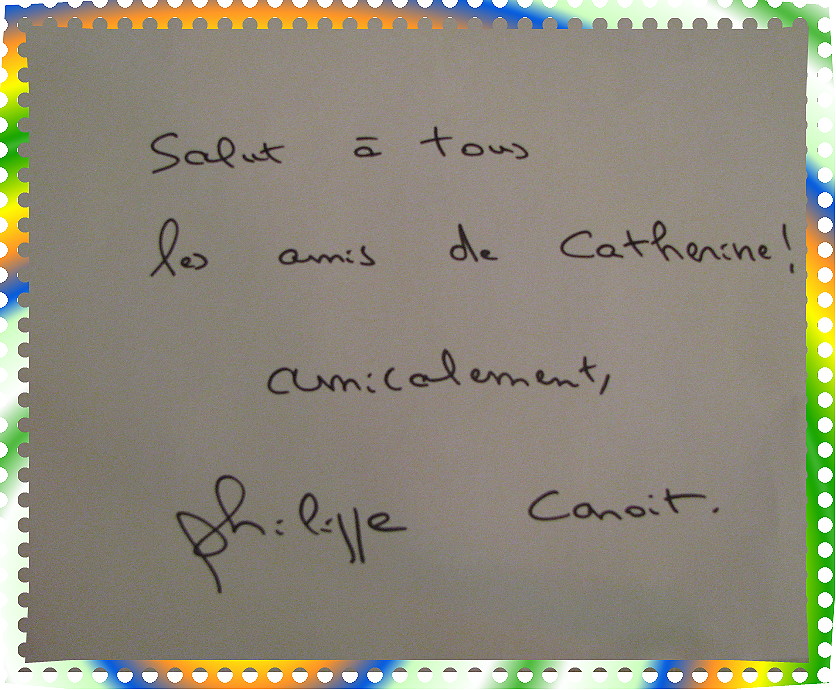 Salut à tous
les amis de Catherine!
amicalement,
philippe Canoit.